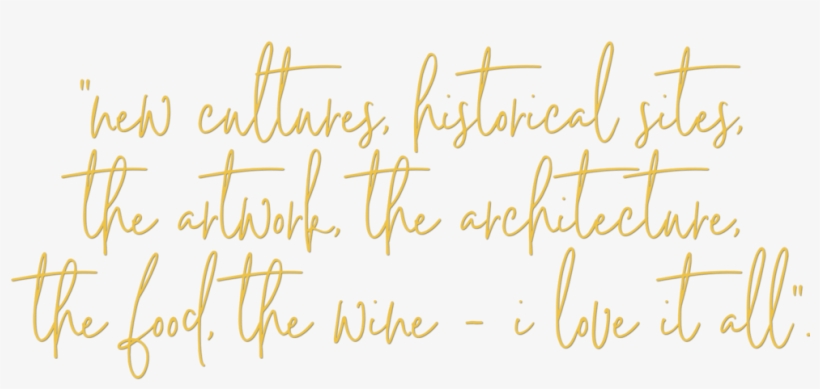 "new cultures, historical sites,
the artwork, the architecture,
the food, the wine - i love it all".